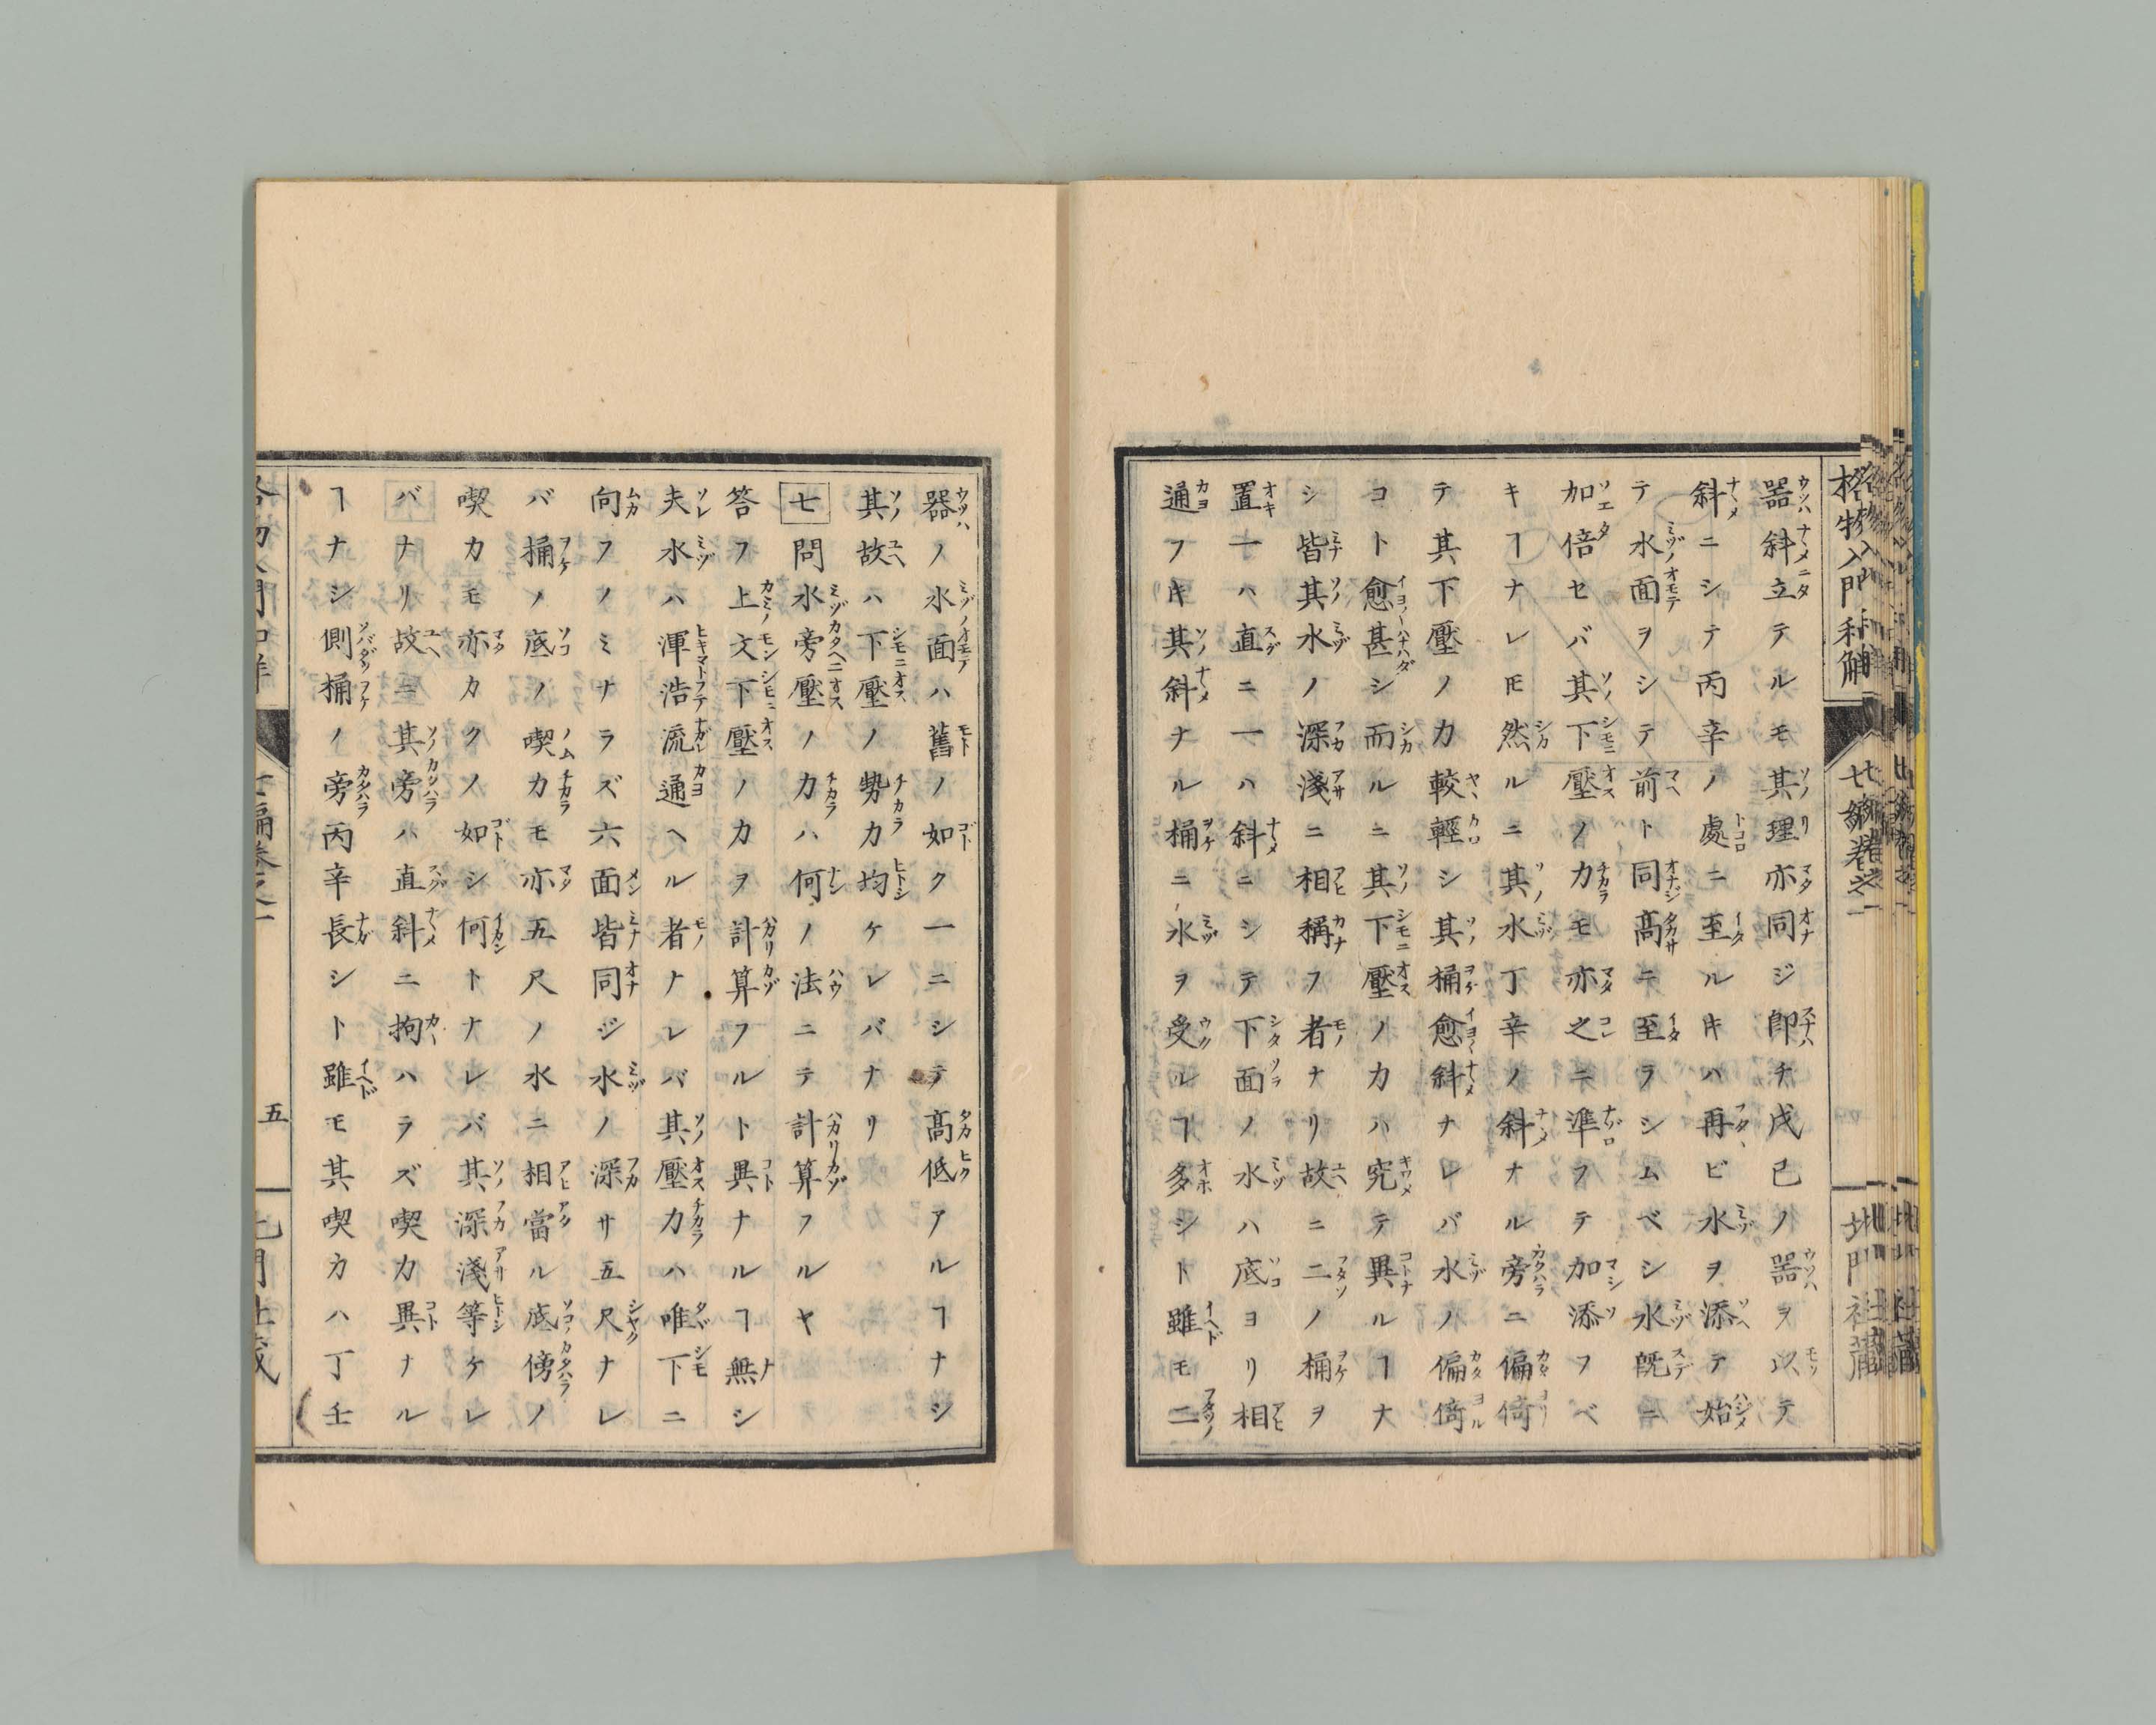 格物入門和解 七編卷之一 北門社藏
器斜立テルモ其理亦同ジ卽チ戊己ノ器ヲ以テ
斜ニシテ丙辛ノ處ニ至ルキハ再ビ水ヲ添テ始
テ水面ヲシテ前ト同髙ニ至ラシムベシ水既ニ
加倍セバ其下壓ノ力モ亦之ニ準ヲテ加添フベ
キヿナレ𪜈然ルニ其水丁辛ノ斜ナル旁ニ偏倚
テ其下壓ノ力較輕シ其桶愈斜ナレバ水ノ偏倚
コト愈甚シ而ルニ其下壓ノ力ハ究テ異ルヿナ
シ皆其水ノ深淺ニ相稱フ者ナリ故ニ二ノ桶ヲ
置一ハ直ニ一ハ斜ニシテ下面ノ水ハ底ヨリ相
通フキ其斜ナル桶ニ水ヲ受ルヿ多シト雖モ二
器ノ水面ハ舊ノ如ク一ニシテ髙低アルヿナシ
其故ハ下壓ノ勢力均ケレバナリ
七 問水旁壓ノ力ハ何ノ法ニテ計算フルヤ
答フ上文下壓ノ力ヲ計算フルト異ナルヿ無シ
夫水ハ渾浩流通ヘル者ナレバ其壓力ハ唯下ニ
向フノミナラズ六面皆同ジ水ノ深サ五尺ナレ
バ桶ノ底ノ喫力モ亦五尺ノ水ニ相當ル底傍ノ
喫力モ亦カクノ如シ何トナレバ其深淺等ケレ
バナリ故ニ其旁ハ直斜ニ拘ハラズ喫力異ナル
ヿナシ側桶ノ旁丙辛長シト雖モ其喫力ハ丁壬
五